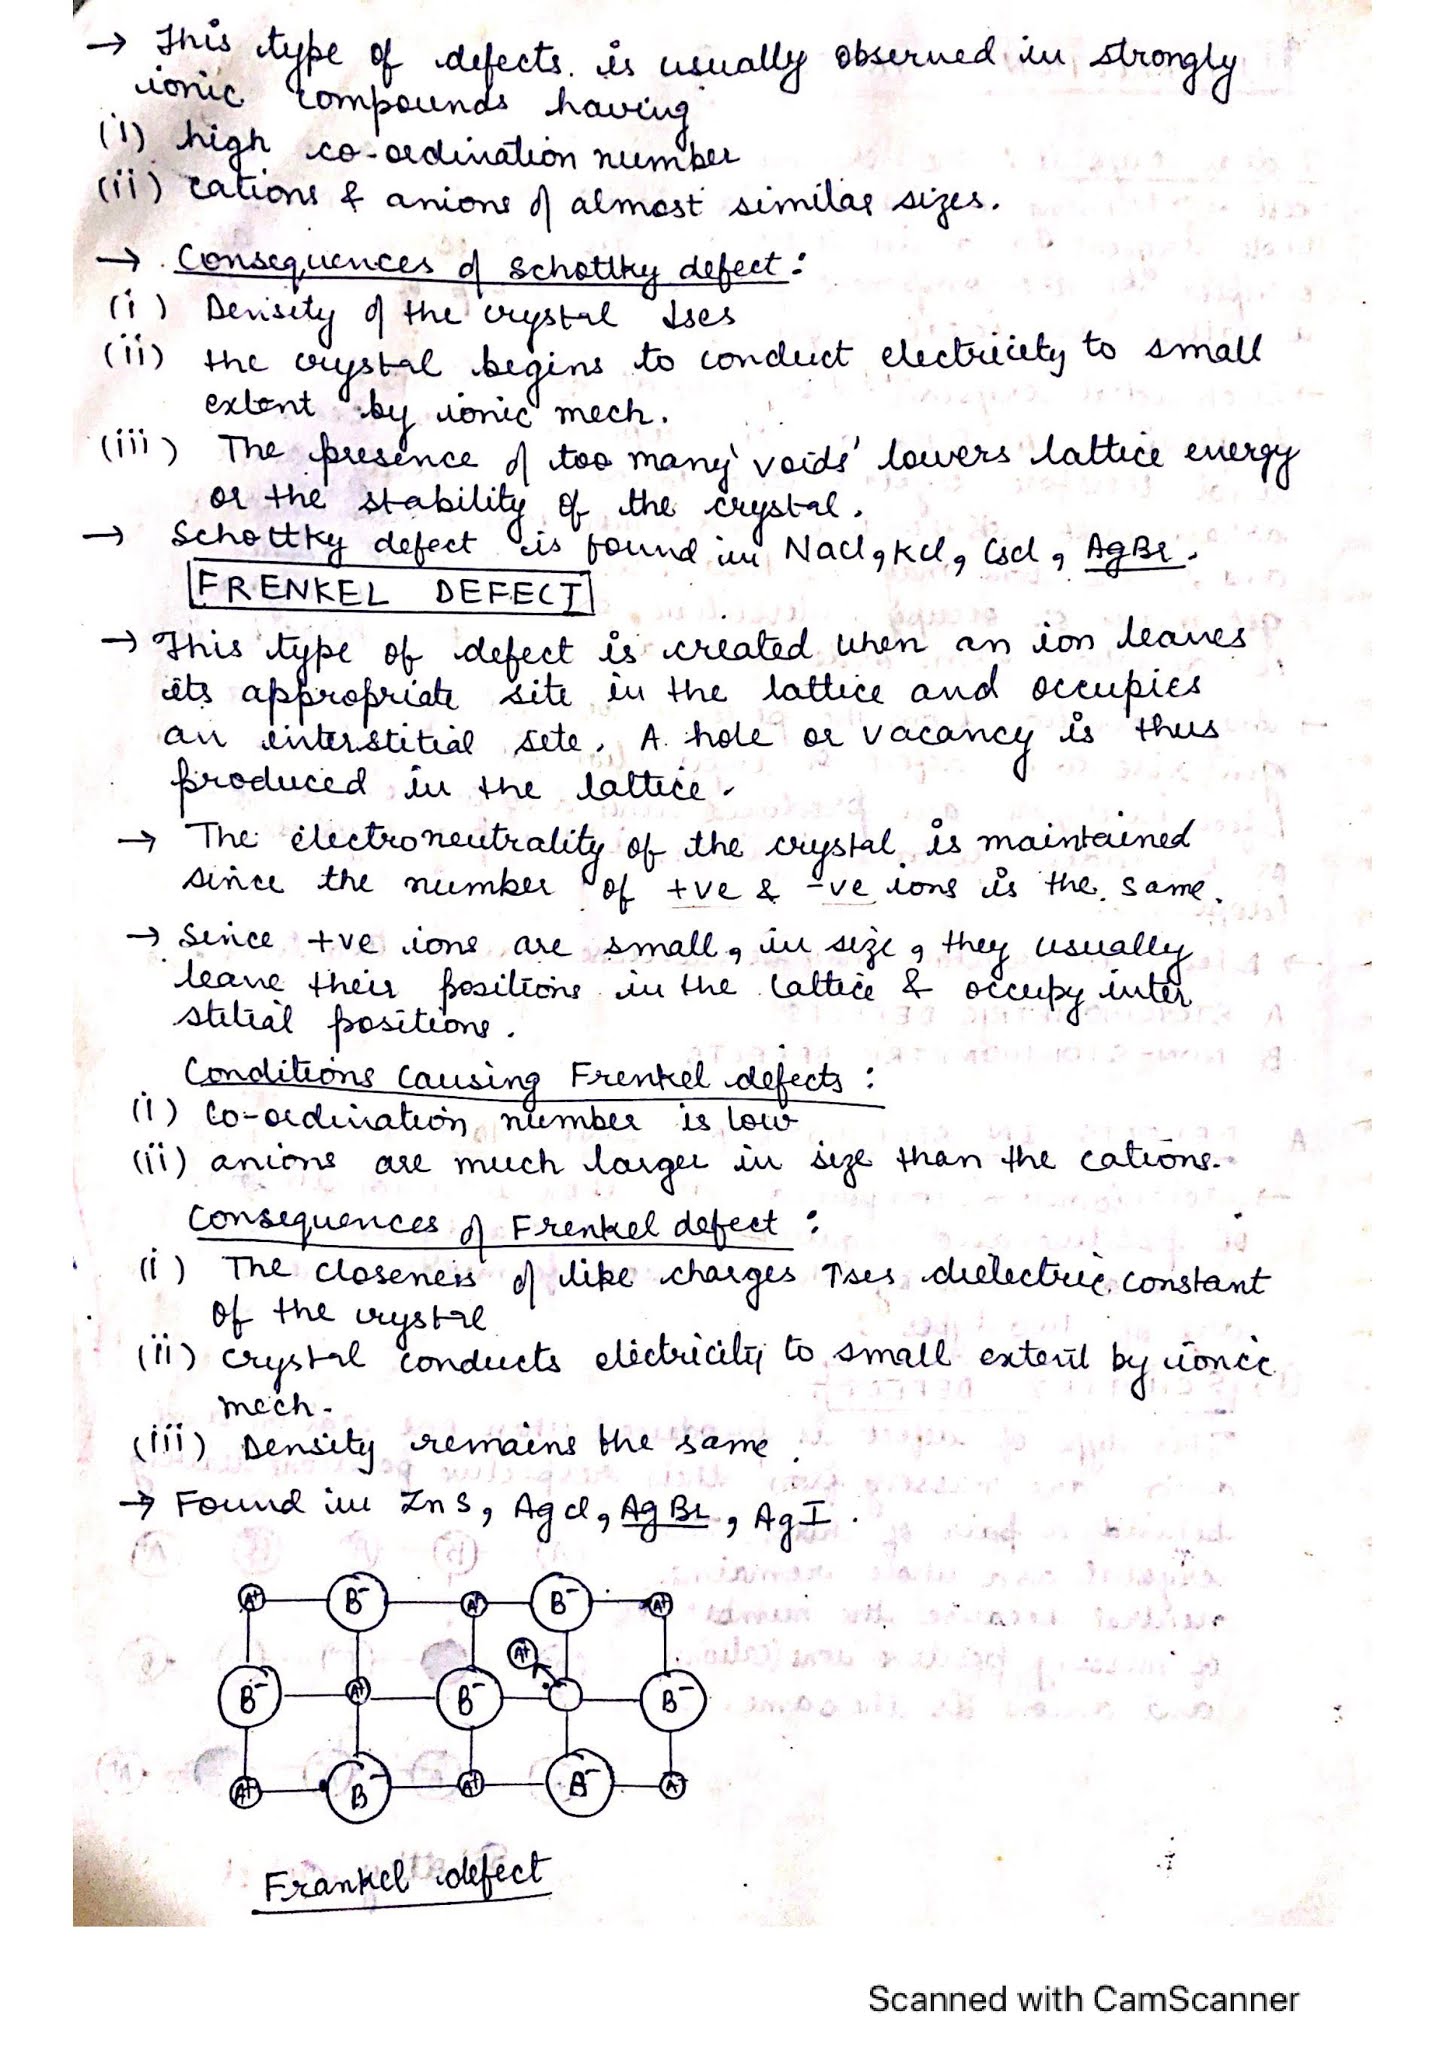 → This type of defects is usually observed in strongly
ionic compounds having
(i) high co-ordination number
(ii) cations & anions of almost similar sizes.
→ Consequences of Schottky defect :
(i) Density of the crystal ↓ses
(ii) the crystal begins to conduct electricity to small
extent by ionic mech.
(iii) The presence of too many 'voids' lowers lattice energy
or the stability of the crystal.
→ Schottky defect is found in NaCl, KCl, CsCl, AgBr.
FRENKEL DEFECT
→ This type of defect is created when an ion leaves
its appropriate site in the lattice and occupies
an interstitial site. A hole or vacancy is thus
produced in the lattice.
→ The electroneutrality of the crystal is maintained
since the number of +ve & -ve ions is the same.
→ Since +ve ions are small, in size, they usually
leave their positions in the lattice & occupy inter
stitial positions.
Conditions Causing Frenkel defects :
(i) Co-ordination number is low
(ii) anions are much larger in size than the cations.
Consequences of Frenkel defect :
(i) The closeness of like charges ↑ses dielectric constant
of the crystal
(ii) crystal conducts electricity to small extent by ionic
mech.
(iii) Density remains the same.
→ Found in ZnS, AgCl, AgBr, AgI.
A+ B- A+ B- A+
A+
B- A+ B- B-
A+ B- A+ B- A-
Frankel defect
Scanned with CamScanner